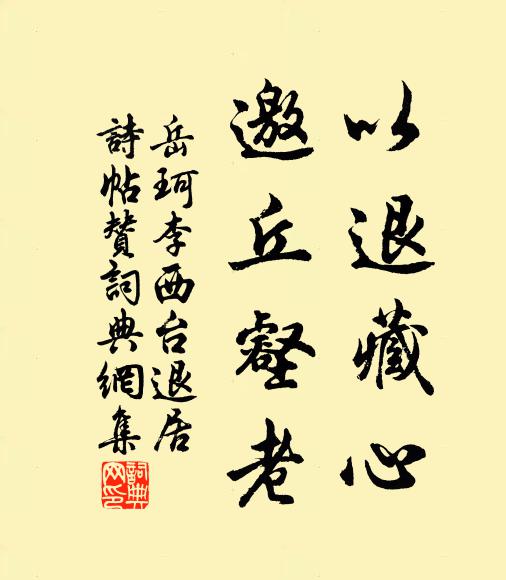 以退藏心
邀丘壑老
岳珂李西台退居
詩帖贊詞典網集
詞典
网印